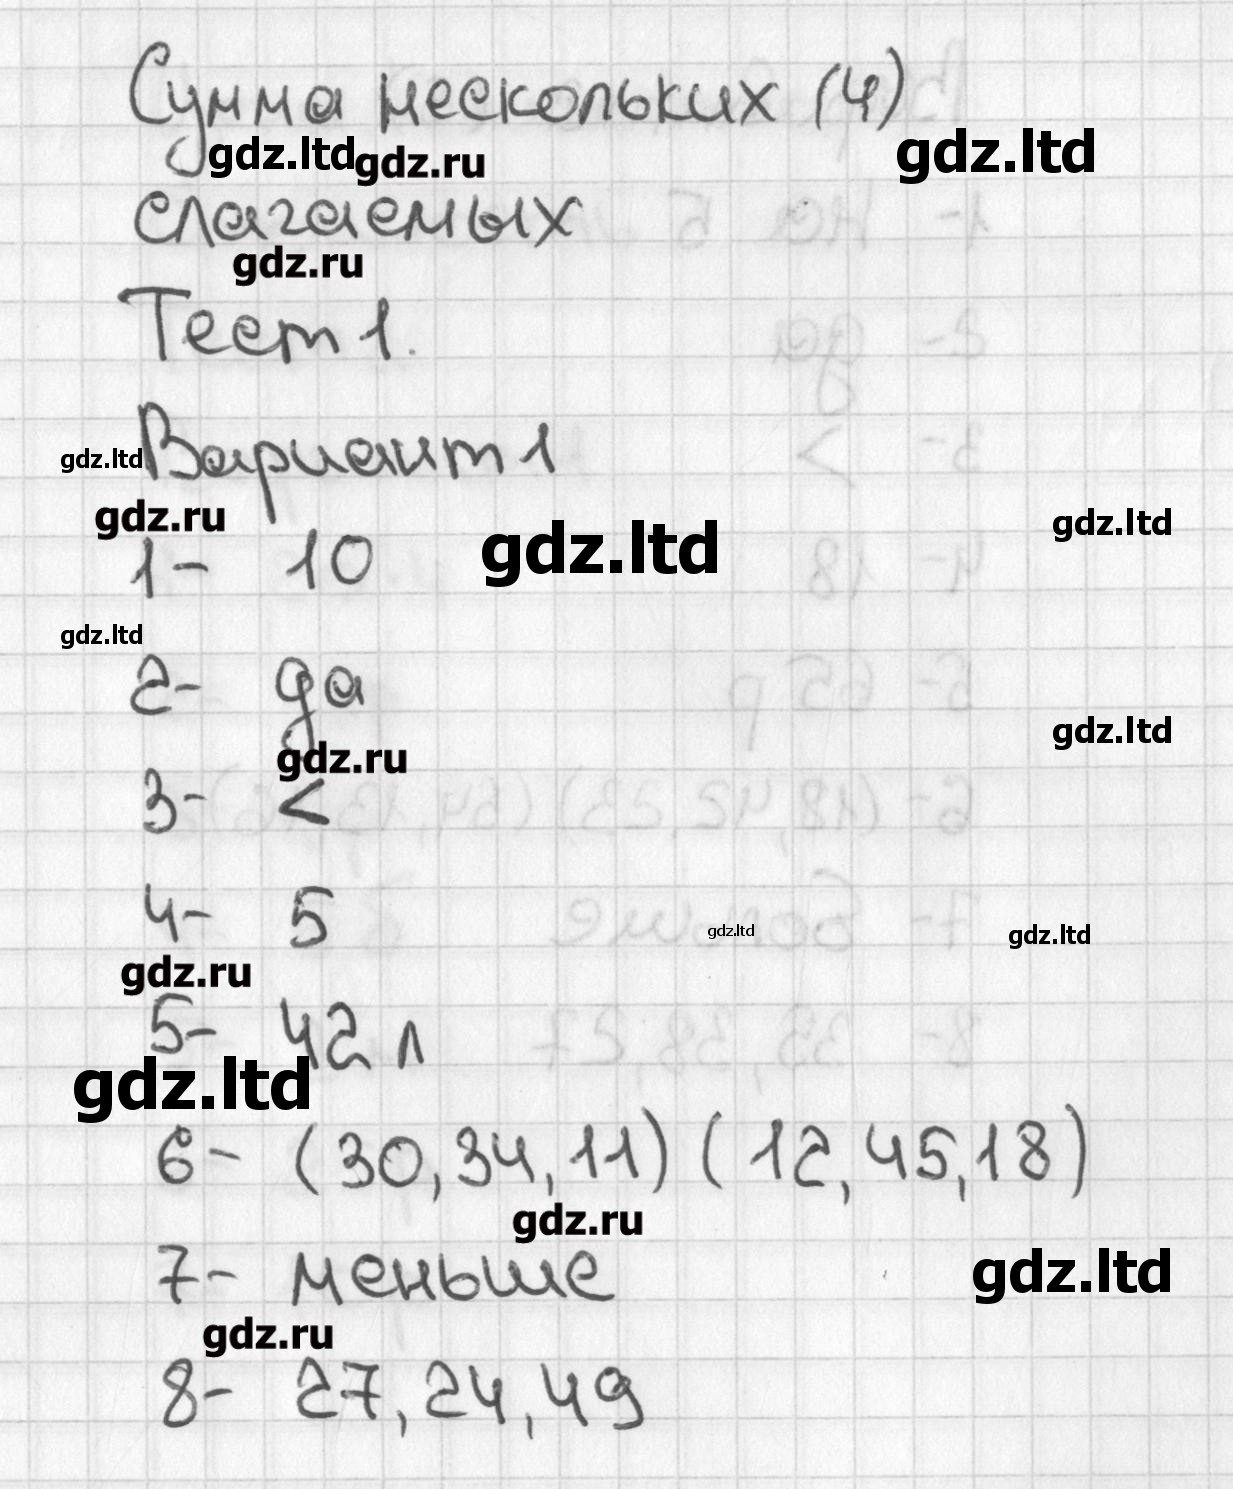 Сумма нескольких (4)
gdz.ltd gdz.ru gdz.ltd
слагаемых
gdz.ru
Тест 1.
Вариант 1
gdz.ltd
gdz.ru gdz.ltd
1- 10 gdz.ltd
gdz.ltd
2- да
gdz.ltd
gdz.ru
3- <
4- 5
gdz.ltd gdz.ltd
gdz.ru
5- 42 л
gdz.ltd
6- (30, 34, 11) (12, 45, 18)
gdz.ru
7- меньше gdz.ltd
gdz.ru
8- 27, 24, 49